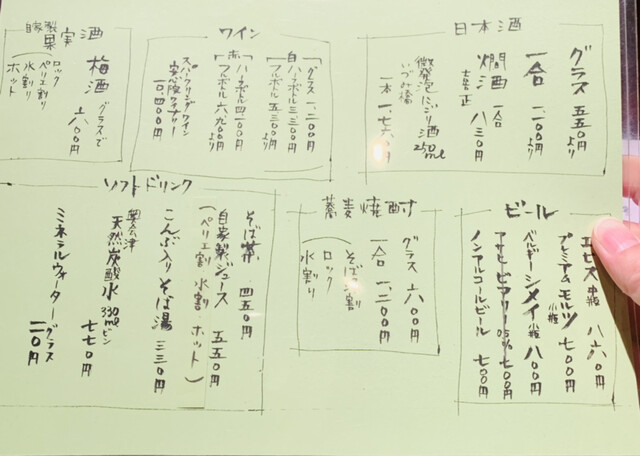 日本酒
グラス 五五〇円より
一合 一、一〇〇円より
燗酒 一合 八三〇円
喜正
微発泡にごり酒 250ml
いづみ橋
一本 一、七六〇円
ワイン
グラス 一、二〇〇円
白 ハーフボトル 三、三〇〇円
フルボトル 五、三〇〇円より
赤 ハーフボトル 四、一〇〇円
フルボトル 六、九〇〇円より
スパークリングワイン
安心院ワイナリー
一〇、四〇〇円
自家製果実酒
梅酒 グラスで 六〇〇円
ロック
ペリエ割り
水割り
ホット
ビール
エビス 中瓶 八六〇円
プレミアムモルツ 小瓶 七〇〇円
ベルギーシメイ 小瓶 八〇〇円
アサヒビアリー 0.5% 七〇〇円
ノンアルコールビール 七〇〇円
蕎麦焼酎
グラス 六〇〇円
一合 一、二〇〇円
そば湯割
ロック
水割り
ソフトドリンク
そば茶 四五〇円
自家製ジュース 五五〇円
(ペリエ割 水割 ホット)
こんぶ入りそば湯 三三〇円
奥会津
天然炭酸水 330mlビン 七七〇円
ミネラルウォーター グラス 一一〇円